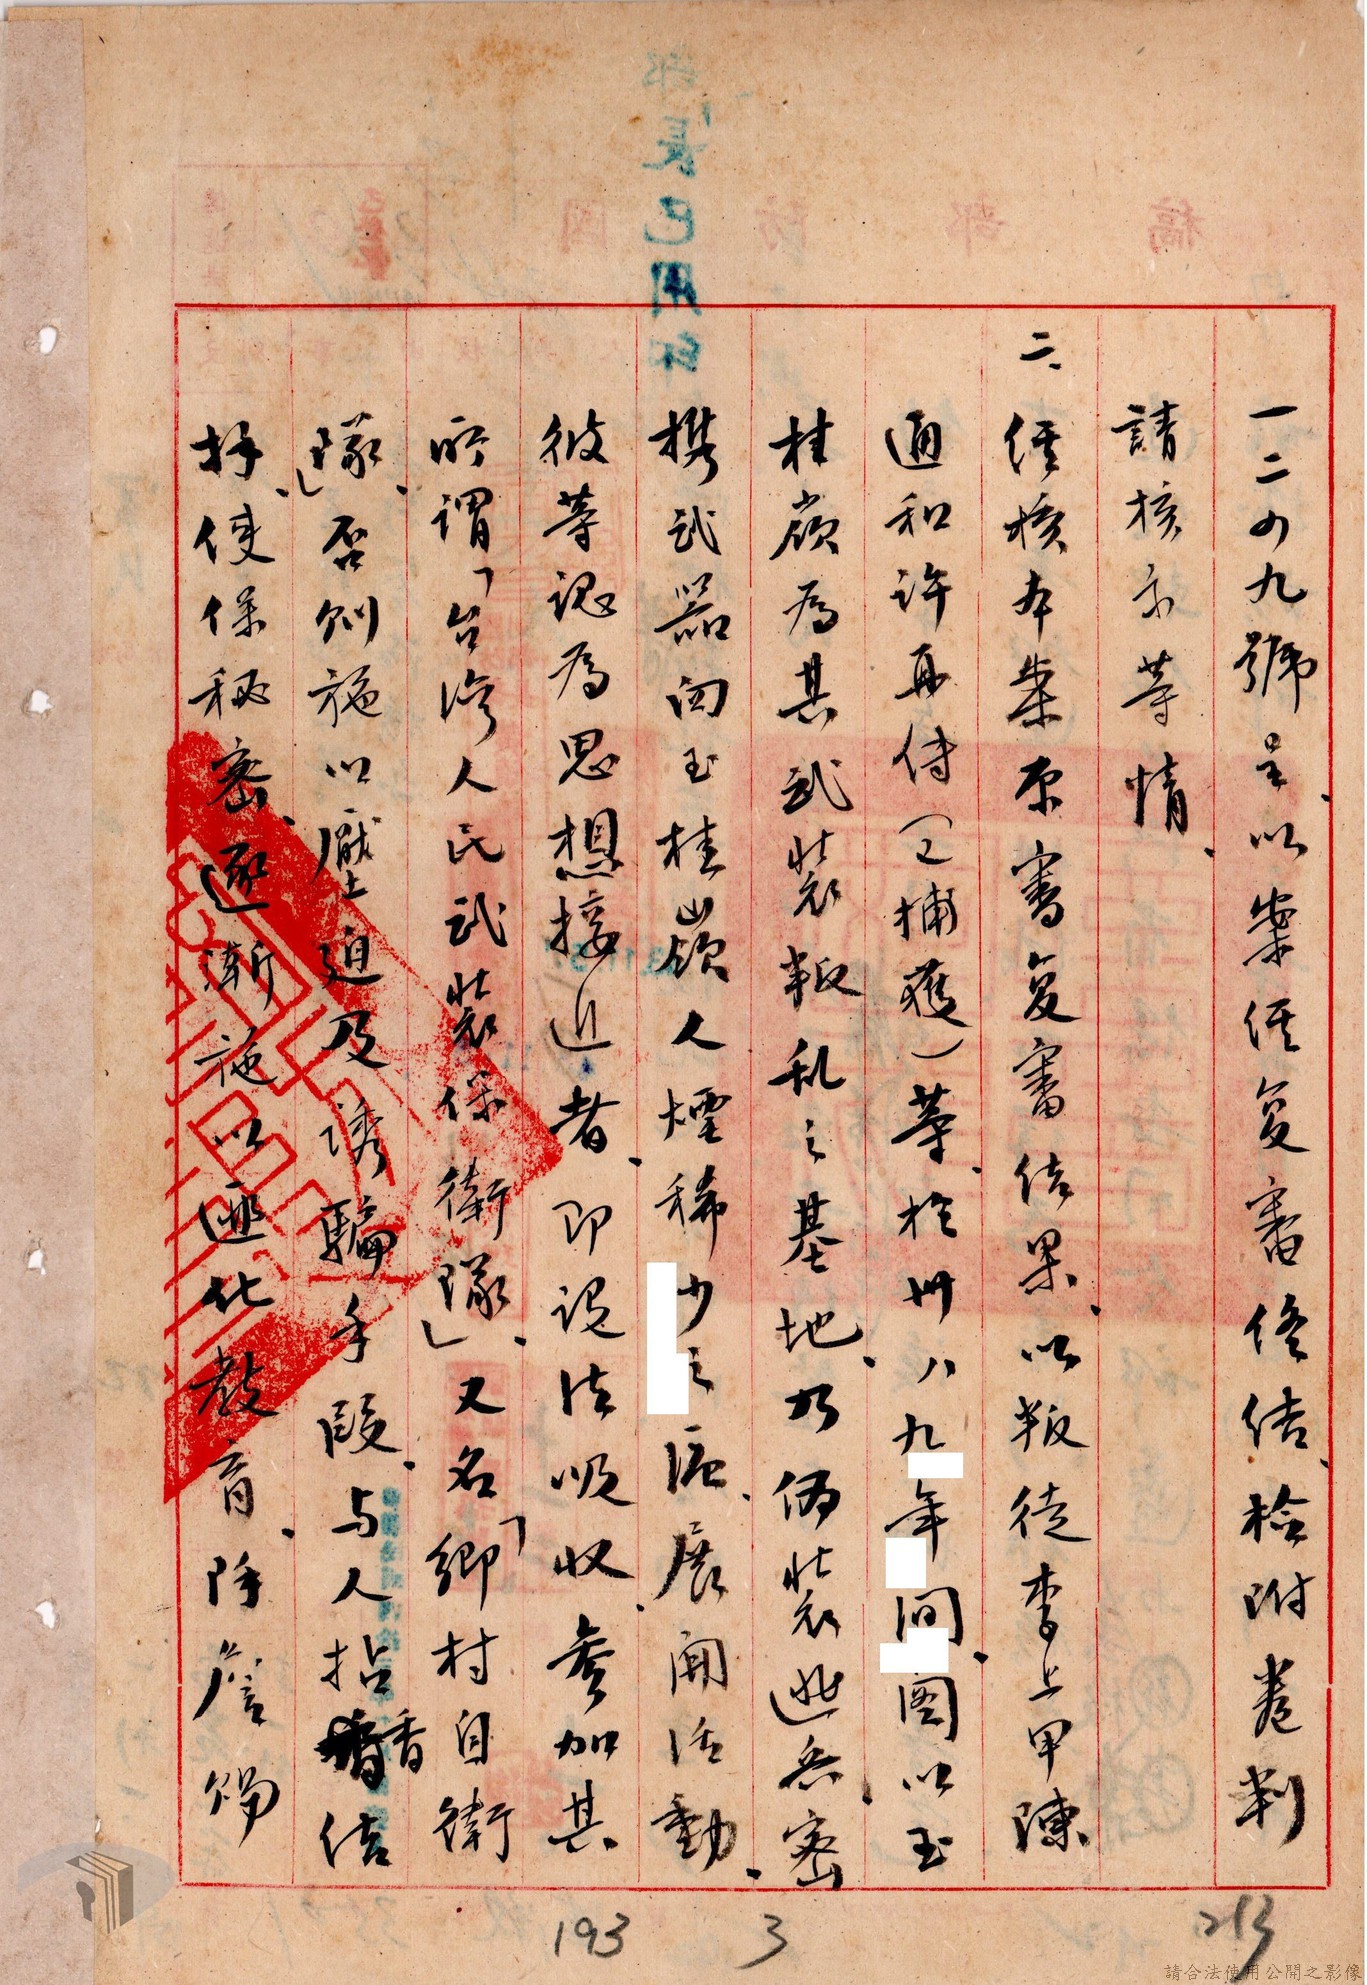 一二四九號呈、以案經复審終結、檢附卷判
請核示等情、
二、經核本案原審复審結果、以叛徒李上甲陳
通和許再傳(已捕獲)等、於卅八九年間、圖以玉
桂嶺為其武裝叛乱之基地、乃偽裝逃兵、密
携武器回玉桂嶺人煙稀少之區、展開活動、
彼等認為思想接近者、即設法吸收、參加其
所謂「台灣人民武裝保衛隊」、又名「鄉村自衛
隊」、否則施以壓迫及誘騙手段、与人拈香結
拜、使保秘密、逐漸施以匪化教育、除詹
部長已用印
國防部稿
193
3
213
請合法使用公開之影像